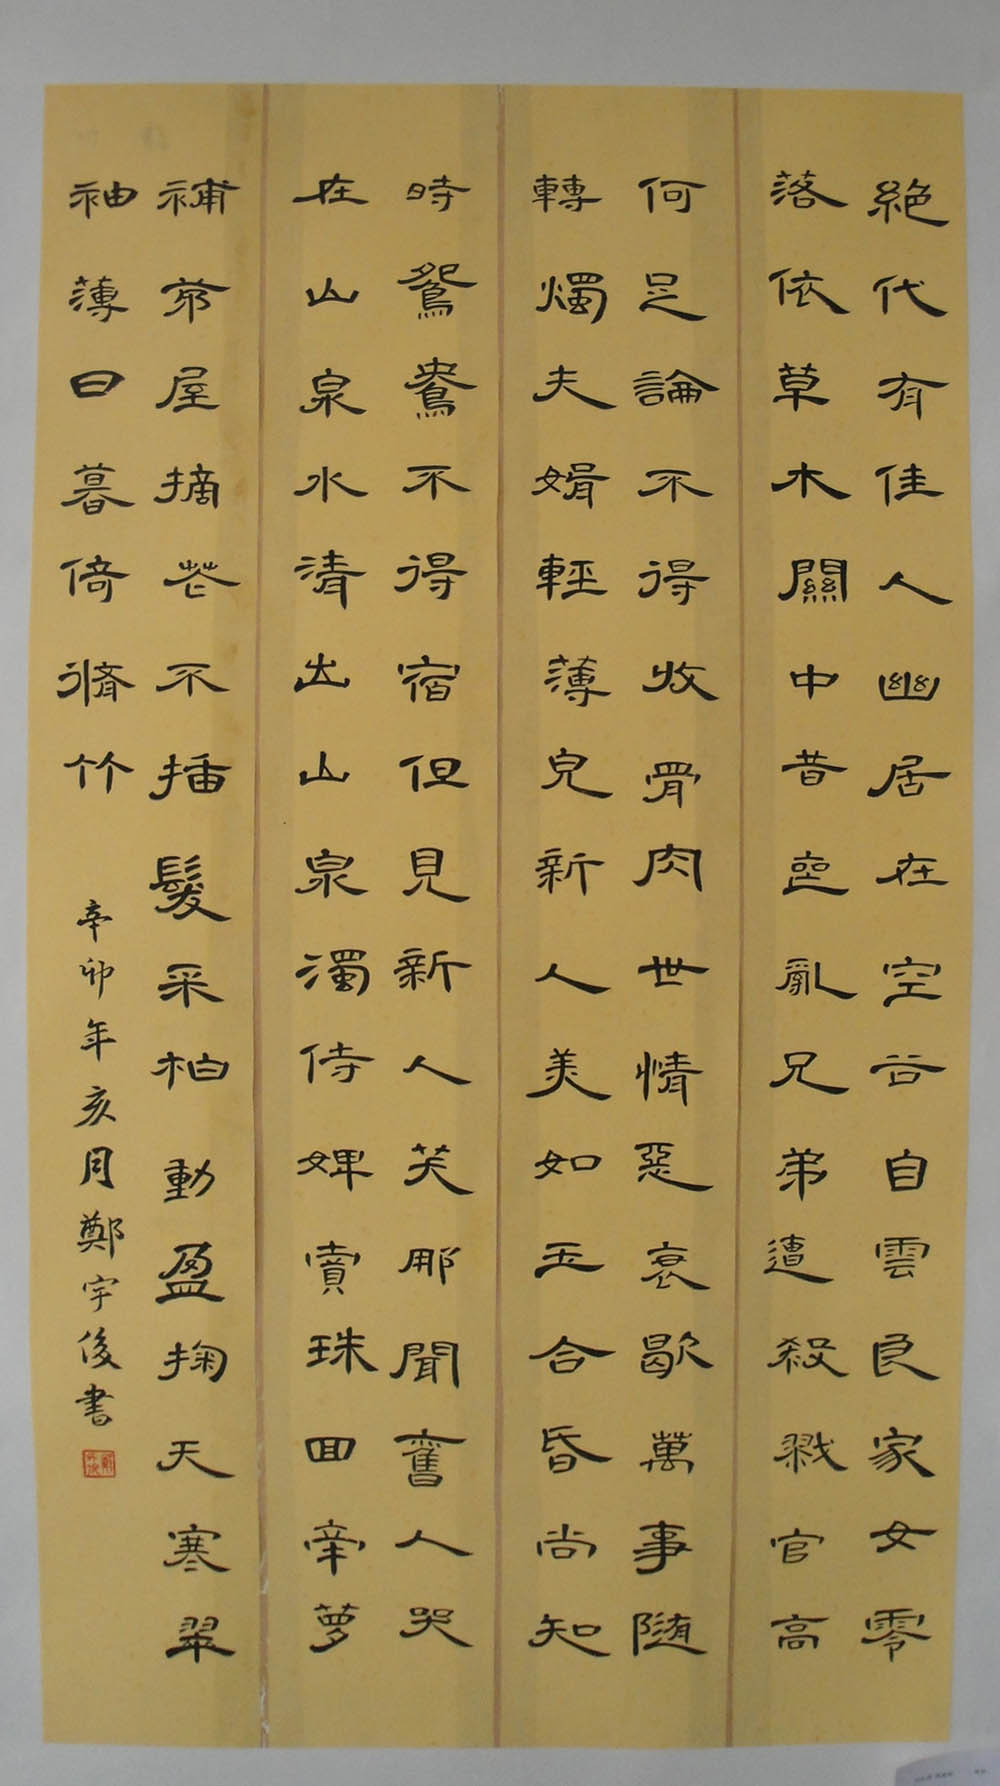 絶代有佳人幽居在空谷自雲良家女零
落依草木關中昔喪亂兄弟遭殺戮官高
何足論不得收骨肉世情惡衰歇萬事随
轉燭夫婿輕薄兒新人美如玉合昏尚知
時鴛鴦不得宿但見新人笑那聞舊人哭
在山泉水清出山泉濁侍婢賣珠回牽萝
補茅屋摘花不插髮采柏動盈掬天寒翠
袖薄日暮倚脩竹
辛卯年亥月鄭宇後書